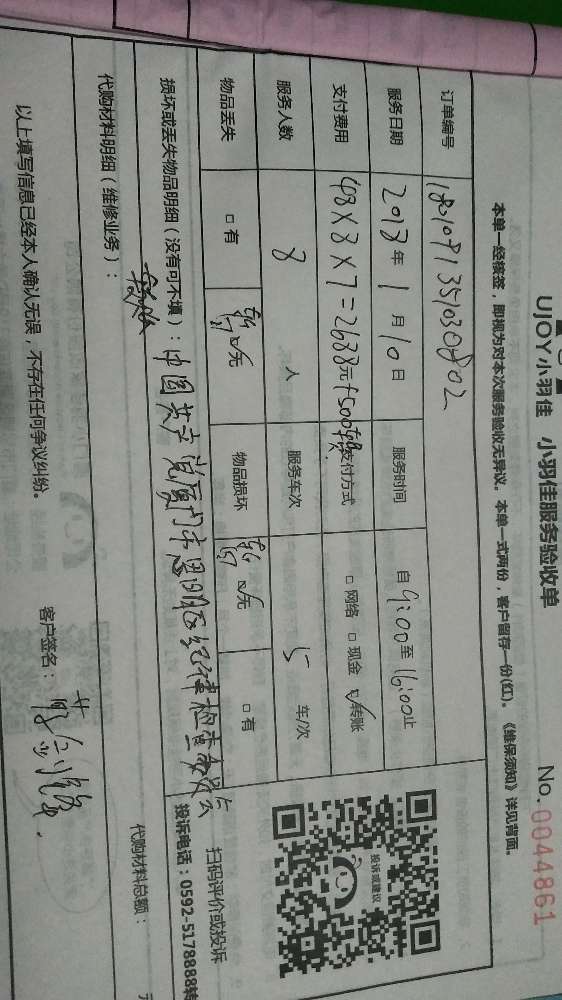 UJOY小羽佳 小羽佳服务验收单
No.0044861
本单一经核签，即视为对本次服务验收无异议。本单一式两份，客户留存一份(红)。《维保须知》详见背面。
订单编号 180109135103080​2
服务日期 2018年1月10日 服务时间 自9:00至16:00止
支付费用 48×8×7=2688元+500 支付方式 □网络 □现金 ☑转账
服务人数 8 人 服务车次 5 车/次
物品丢失 □有 ☑无 物品损坏 ☑无 □有
投诉或建议
扫码评价或投诉
投诉电话：0592-5178888转
损坏或丢失物品明细（没有可不填）：中国共产党厦门市思明区纪律检查委员会
代购材料明细（维修业务）：
代购材料总额： 元
以上填写信息已经本人确认无误，不存在任何争议纠纷。 客户签名：